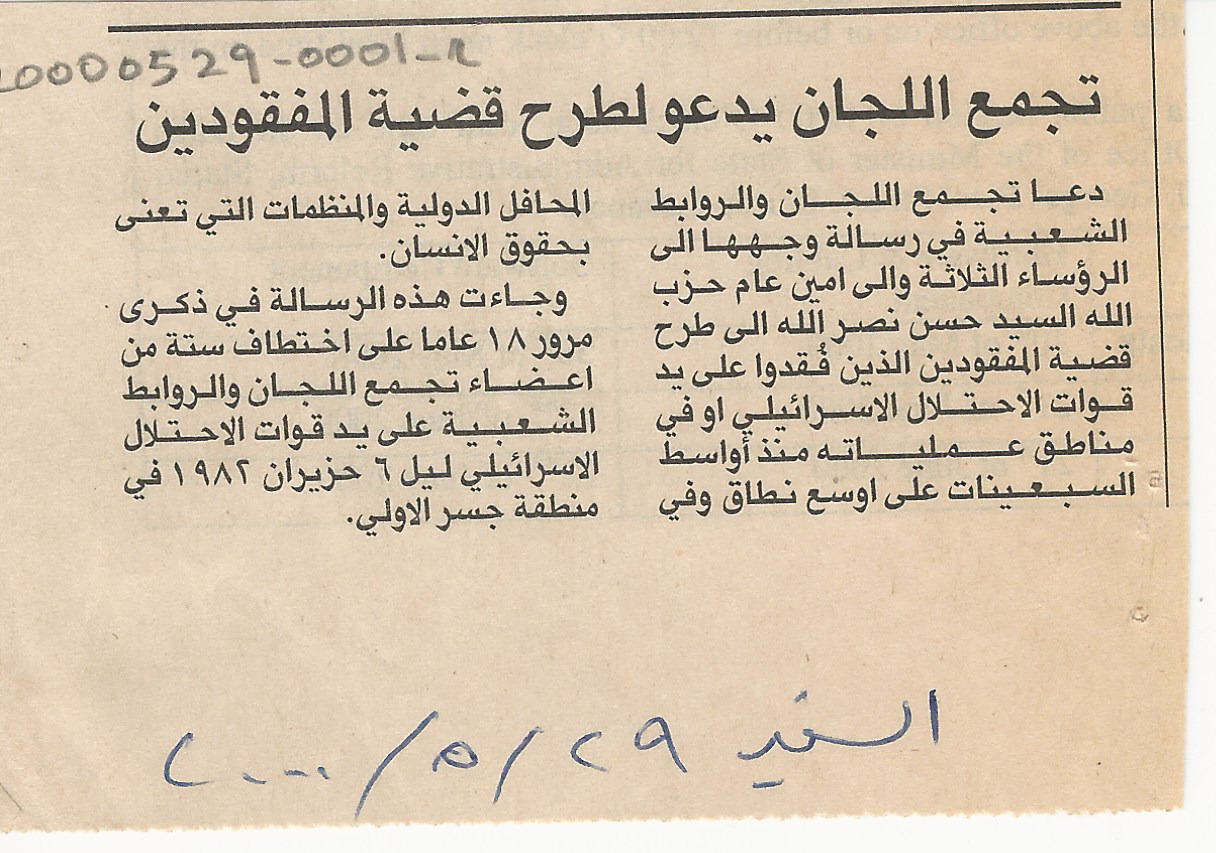 20000529-0001-R
تجمع اللجان يدعو لطرح قضية المفقودين
دعا تجمع اللجان والروابط
الشعبية في رسالة وجهها الى
الرؤساء الثلاثة والى امين عام حزب
الله السيد حسن نصر الله الى طرح
قضية المفقودين الذين فُقدوا على يد
قوات الاحتلال الاسرائيلي او في
مناطق عملياته منذ أواسط
السبعينات على اوسع نطاق وفي
المحافل الدولية والمنظمات التي تعنى
بحقوق الانسان.
وجاءت هذه الرسالة في ذكرى
مرور ١٨ عاما على اختطاف ستة من
اعضاء تجمع اللجان والروابط
الشعبية على يد قوات الاحتلال
الاسرائيلي ليل ٦ حزيران ١٩٨٢ في
منطقة جسر الاولي.
السفير ٢٩/٥/٢٠٠٠